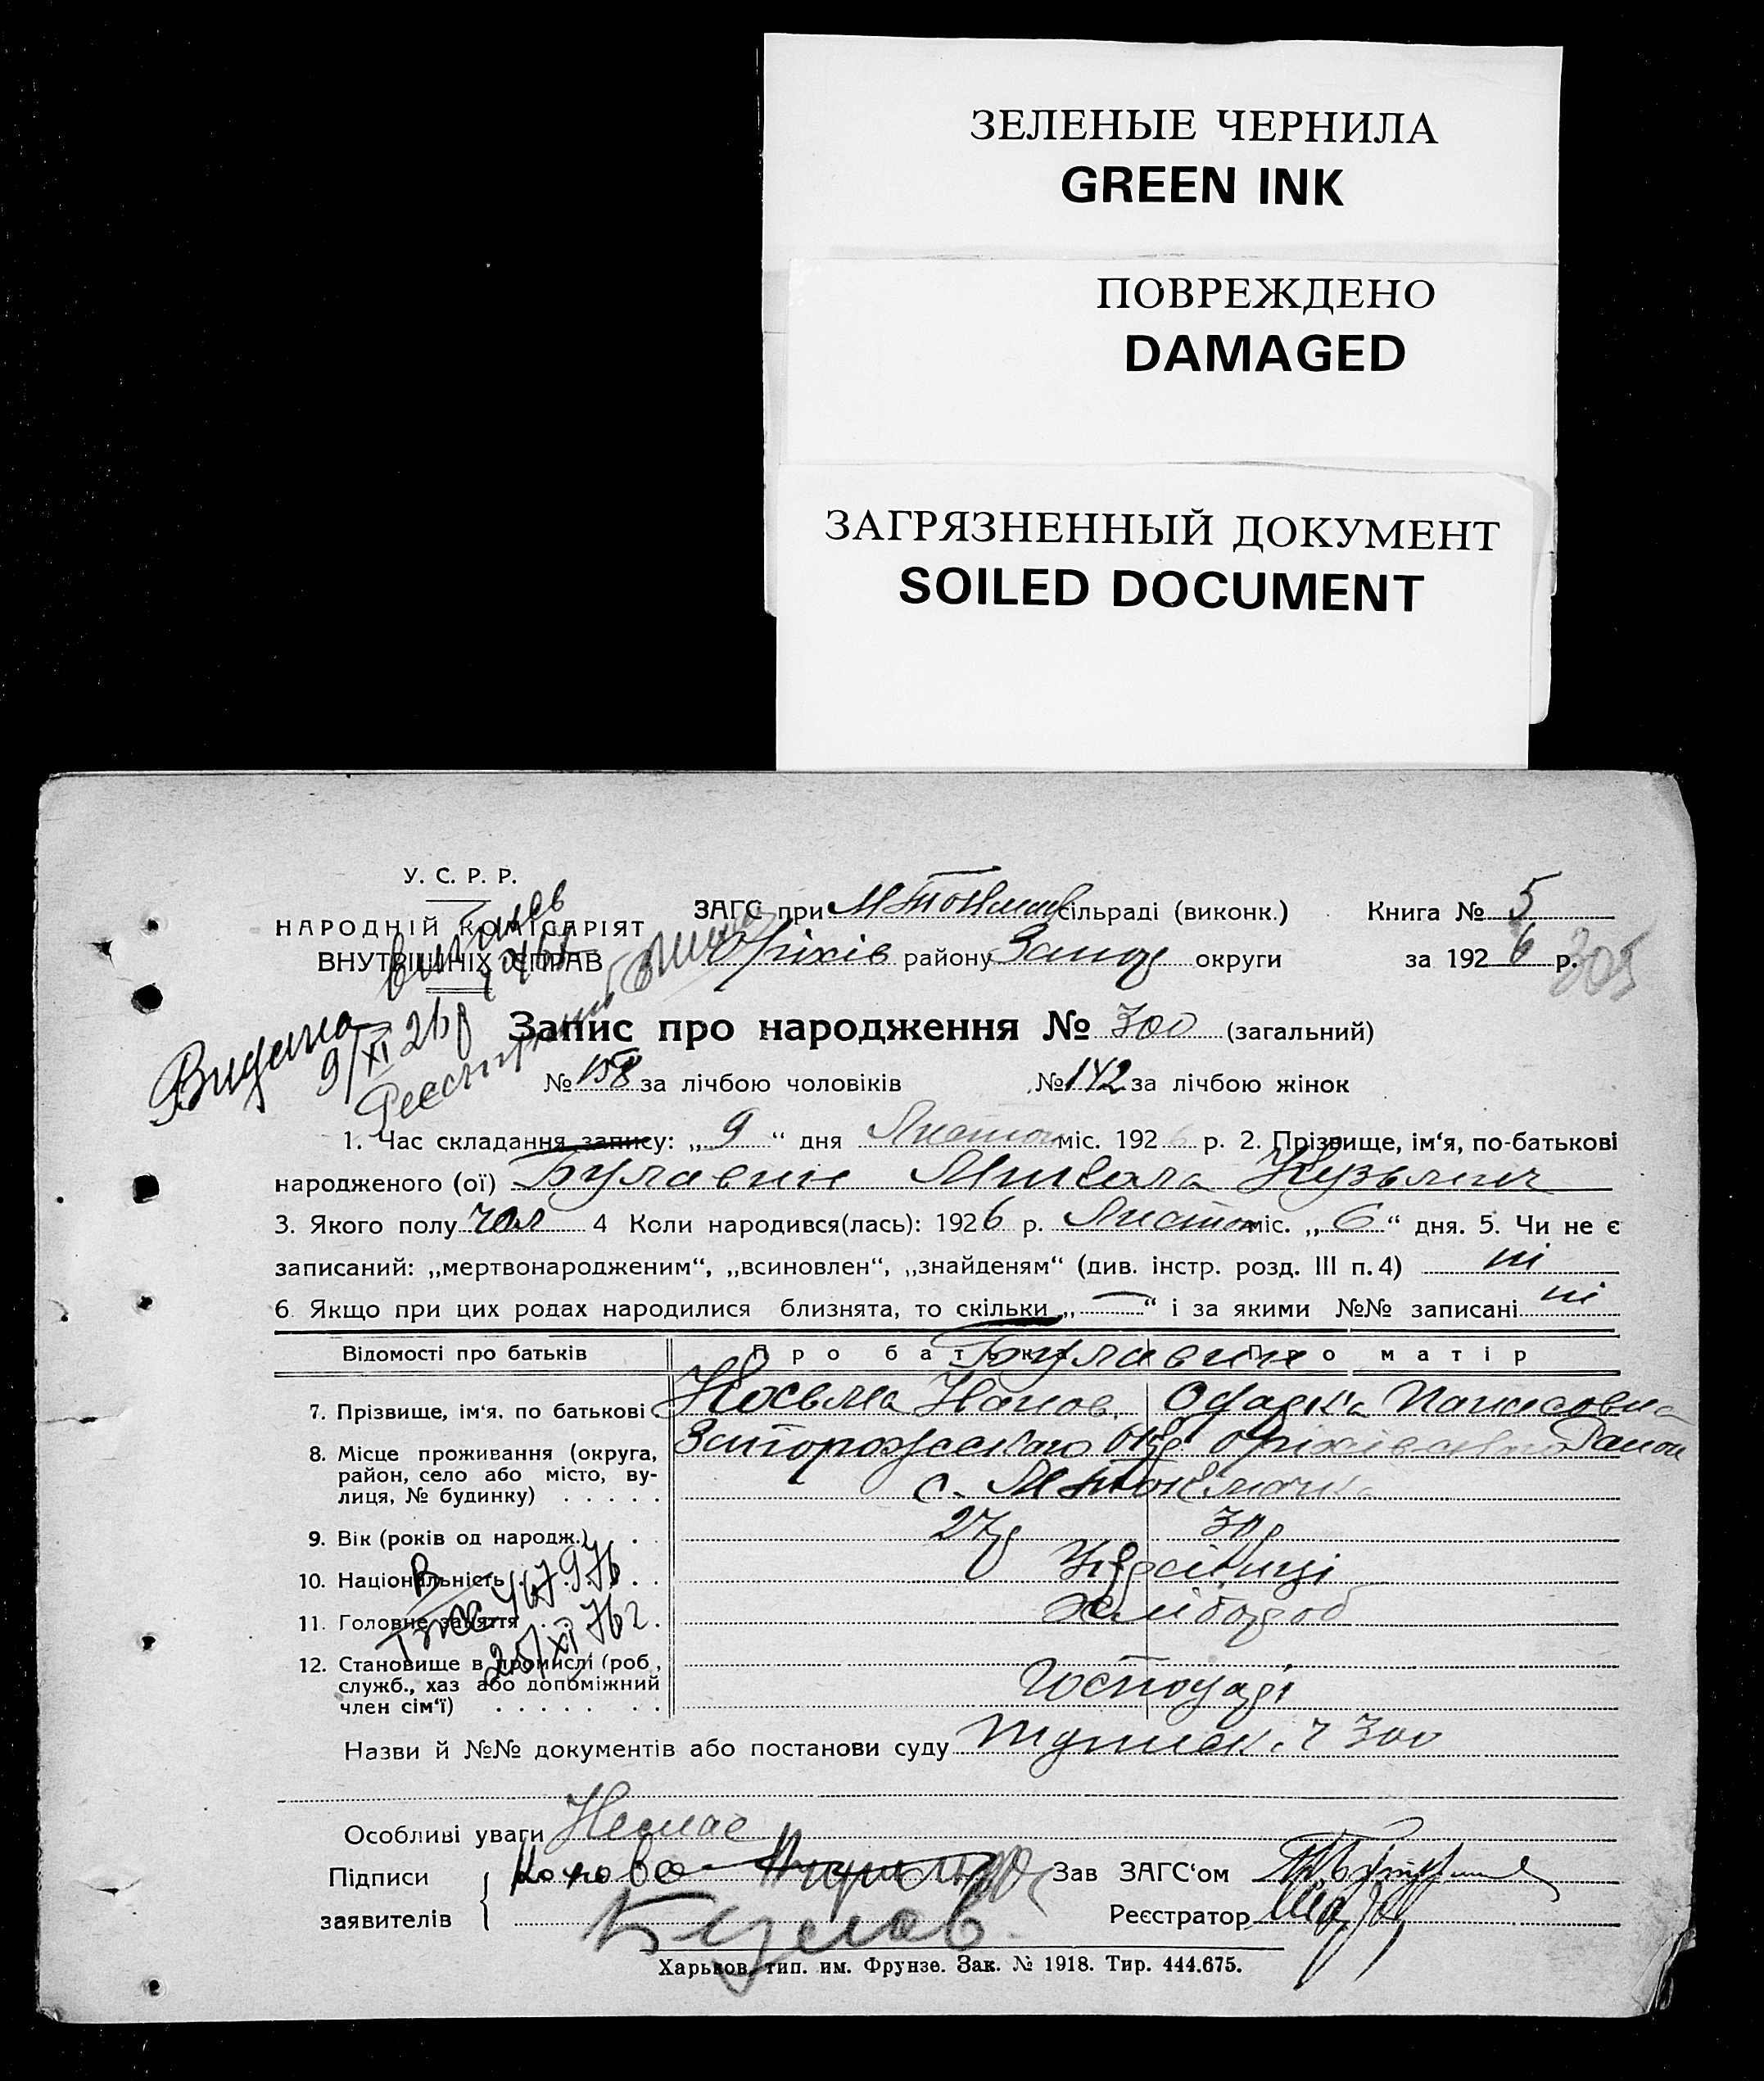 ЗЕЛЕНЫЕ ЧЕРНИЛА
GREEN INK
ПОВРЕЖДЕНО
DAMAGED
ЗАГРЯЗНЕННЫЙ ДОКУМЕНТ
SOILED DOCUMENT
У. С. Р. Р.
НАРОДНІЙ КОМІСАРІЯТ
ВНУТРІШНІХ СПРАВ
ЗАГС при М Токмац сільраді (виконк.) Книга № 5
Оріхів району Запор округи за 1926 р. 305
Видано
9/XI 26 р
Запис про народження № 300 (загальний)
№ 158 за лічбою чоловіків № 142 за лічбою жінок
1. Час складання запису: „9“ дня Листоп міс. 1926 р. 2. Прізвище, ім‘я, по-батькові
народженого (ої) Булавин Микола Кузьмич
3. Якого полу чол 4 Коли народився(лась): 1926 р. Листоп міс. „6“ дня. 5. Чи не є
записаний: „мертвонародженим“, „всиновлен“, „знайденям“ (див. інстр. розд. III п. 4) ні
6. Якщо при цих родах народилися близнята, то скільки „—“ і за якими №№ записані ні
Відомості про батьків Про батька Про матір
Булавин
7. Прізвище, ім‘я. по батькові Козьма
8. Місце проживання (округа, Запорожского окр Оріхівського Район
район, село або місто, ву-
лиця, № будинку) с. М Токмачка
9. Вік (років од народж.) 27р 30р
10. Національність Українці
11. Головне заняття Хлібороб
12. Становище в промислі (роб.,
служб., хаз або допоміжний Господарі
член сім‘ї)
467976
25/XI 76 г.
Назви й №№ документів або постанови суду 300
Особливі уваги Немає
Підписи Зав ЗАГС‘ом
заявителів Реєстратор
Харьков, тип. им. Фрунзе. Зак. № 1918. Тир. 444.675.